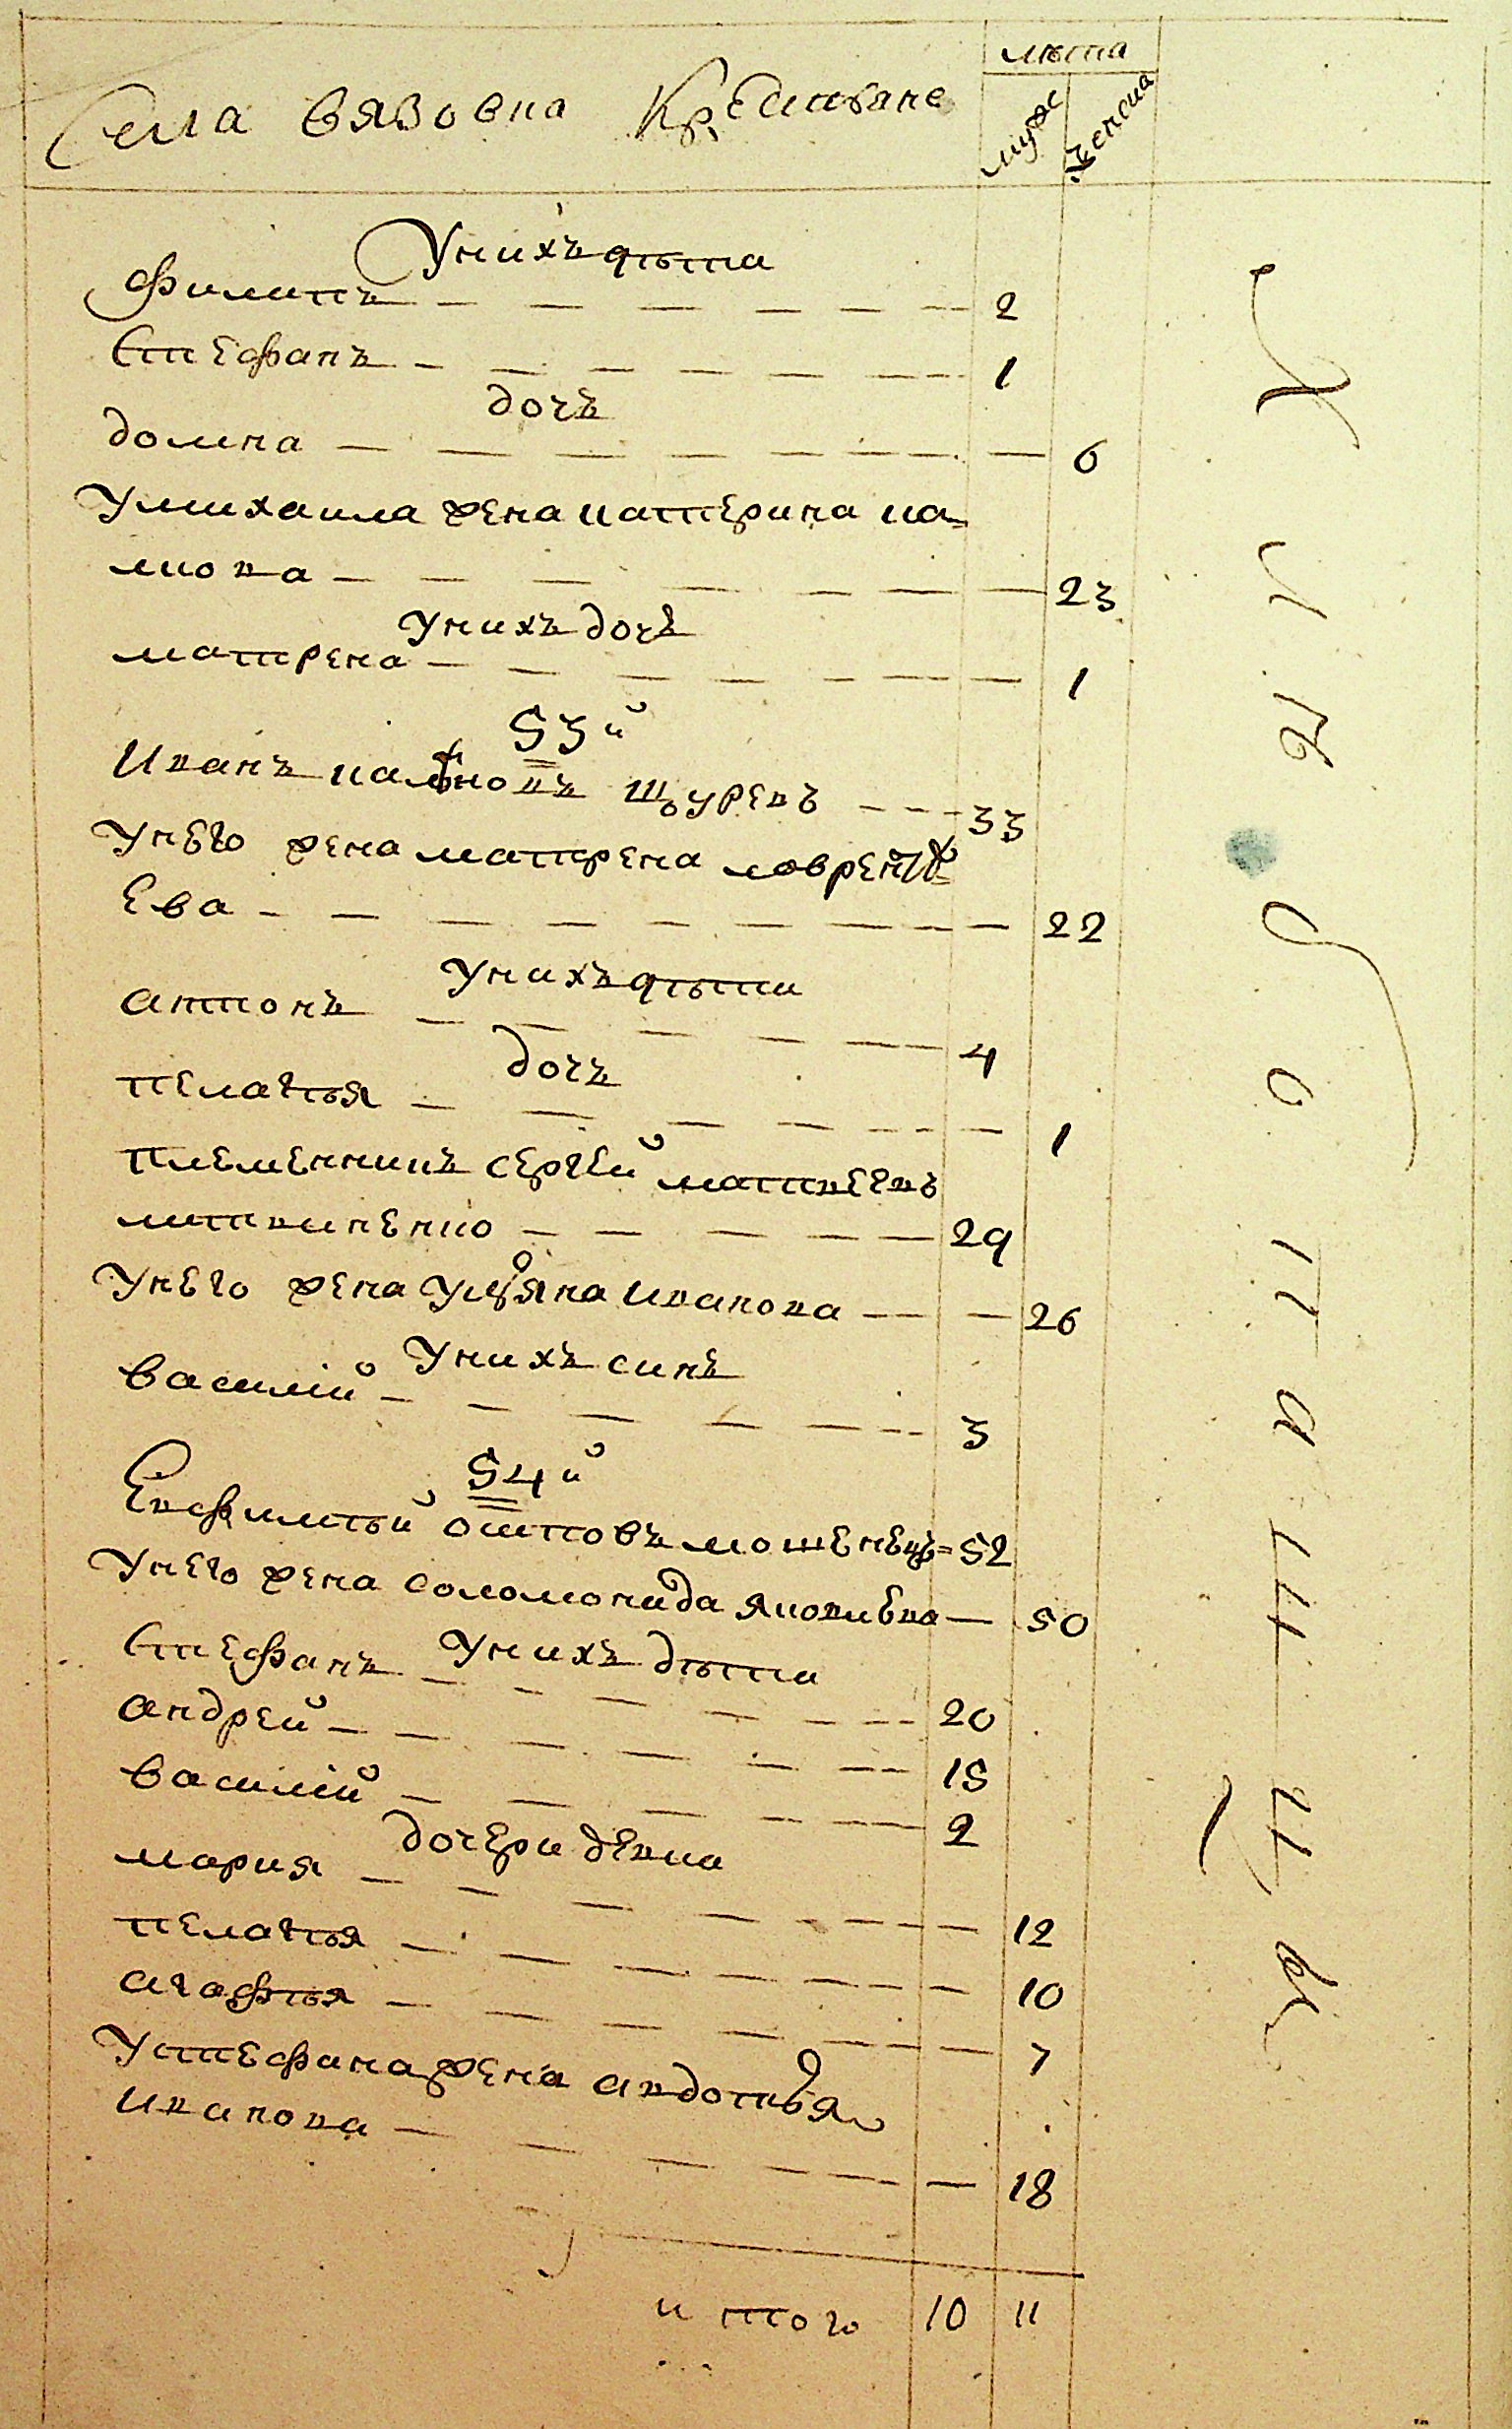 Села Вязовка Крестьяне
лѣта
мужс
женска
У нихъ дѣти
Филипъ — 2
Стефанъ — 1
дочь
домна — 6
У михаила жена катерина ка-
люва — 23
У нихъ дочь
матрена — 1
53й
Иванъ Щурек — 33
У него жена матрена лаврентʼ-
Ева — 22
У нихъ дѣти
антонъ — 4
дочь
пелагѣя — 1
племенникъ сергей матвеевъ
литвиненко — 29
У него жена Ульяна иванова — 26
У нихъ синъ
василий — 3
54й
Евфимѣй мошенецъ = 52
У него жена соломонида яковивна — 50
У нихъ дѣти
Стефанъ — 20
андрей — 15
василий — 2
дочери девки
мария — 12
пелагѣя — 10
агафѣя — 7
У стефана жена авдотья
иванова — 18
итого 10 11